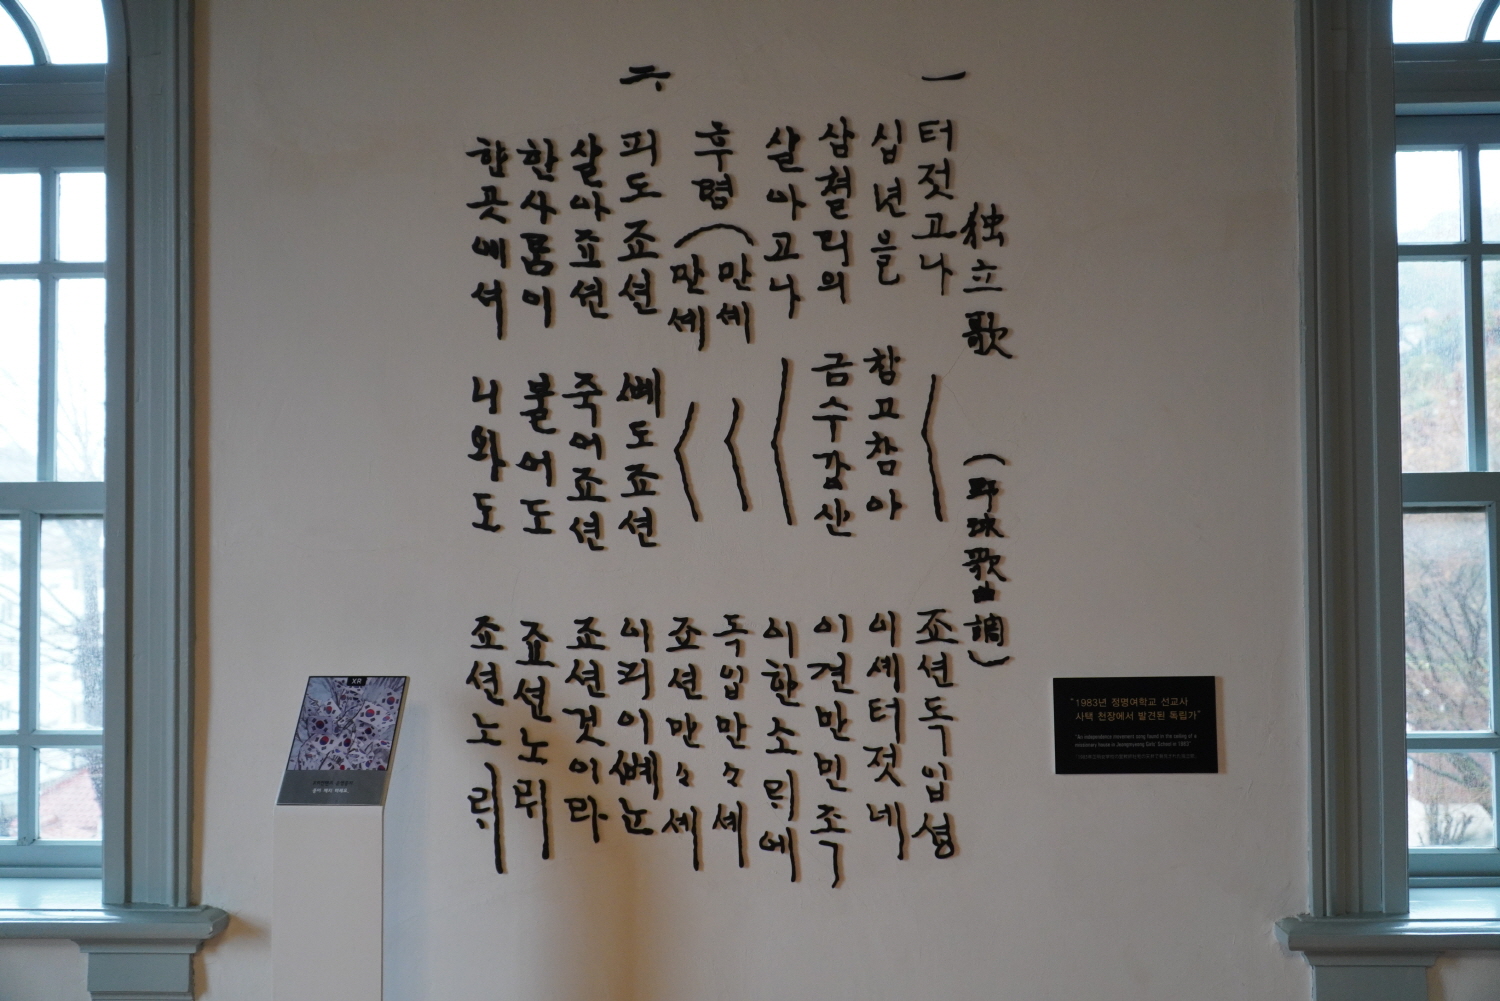 独立歌 (野球歌曲調)
一
터젓고나 〈 죠션독입셩
십년을 참고참아 이셰터젓네
삼쳘리의 금수강산 이견만민족
살아고나 〈 이한소ᄅᆡ에
후렴 (만셰 〈 독입만々셰
만셰 〈 죠션만々세
六
피도죠션 뼈도죠션 이피이뼈는
살아죠션 죽어죠션 죠션것이라
한사ᄅᆞᆷ이 불어도 죠션노ᄅᆡ
한곳에셔 니와도 죠션노ᄅᆡ
XR
"1983년 정명여학교 선교사
사택 천장에서 발견된 독립가"
"An independence movement song found in the ceiling of a
missionary house in Jeongmyeong Girls' School in 1983"